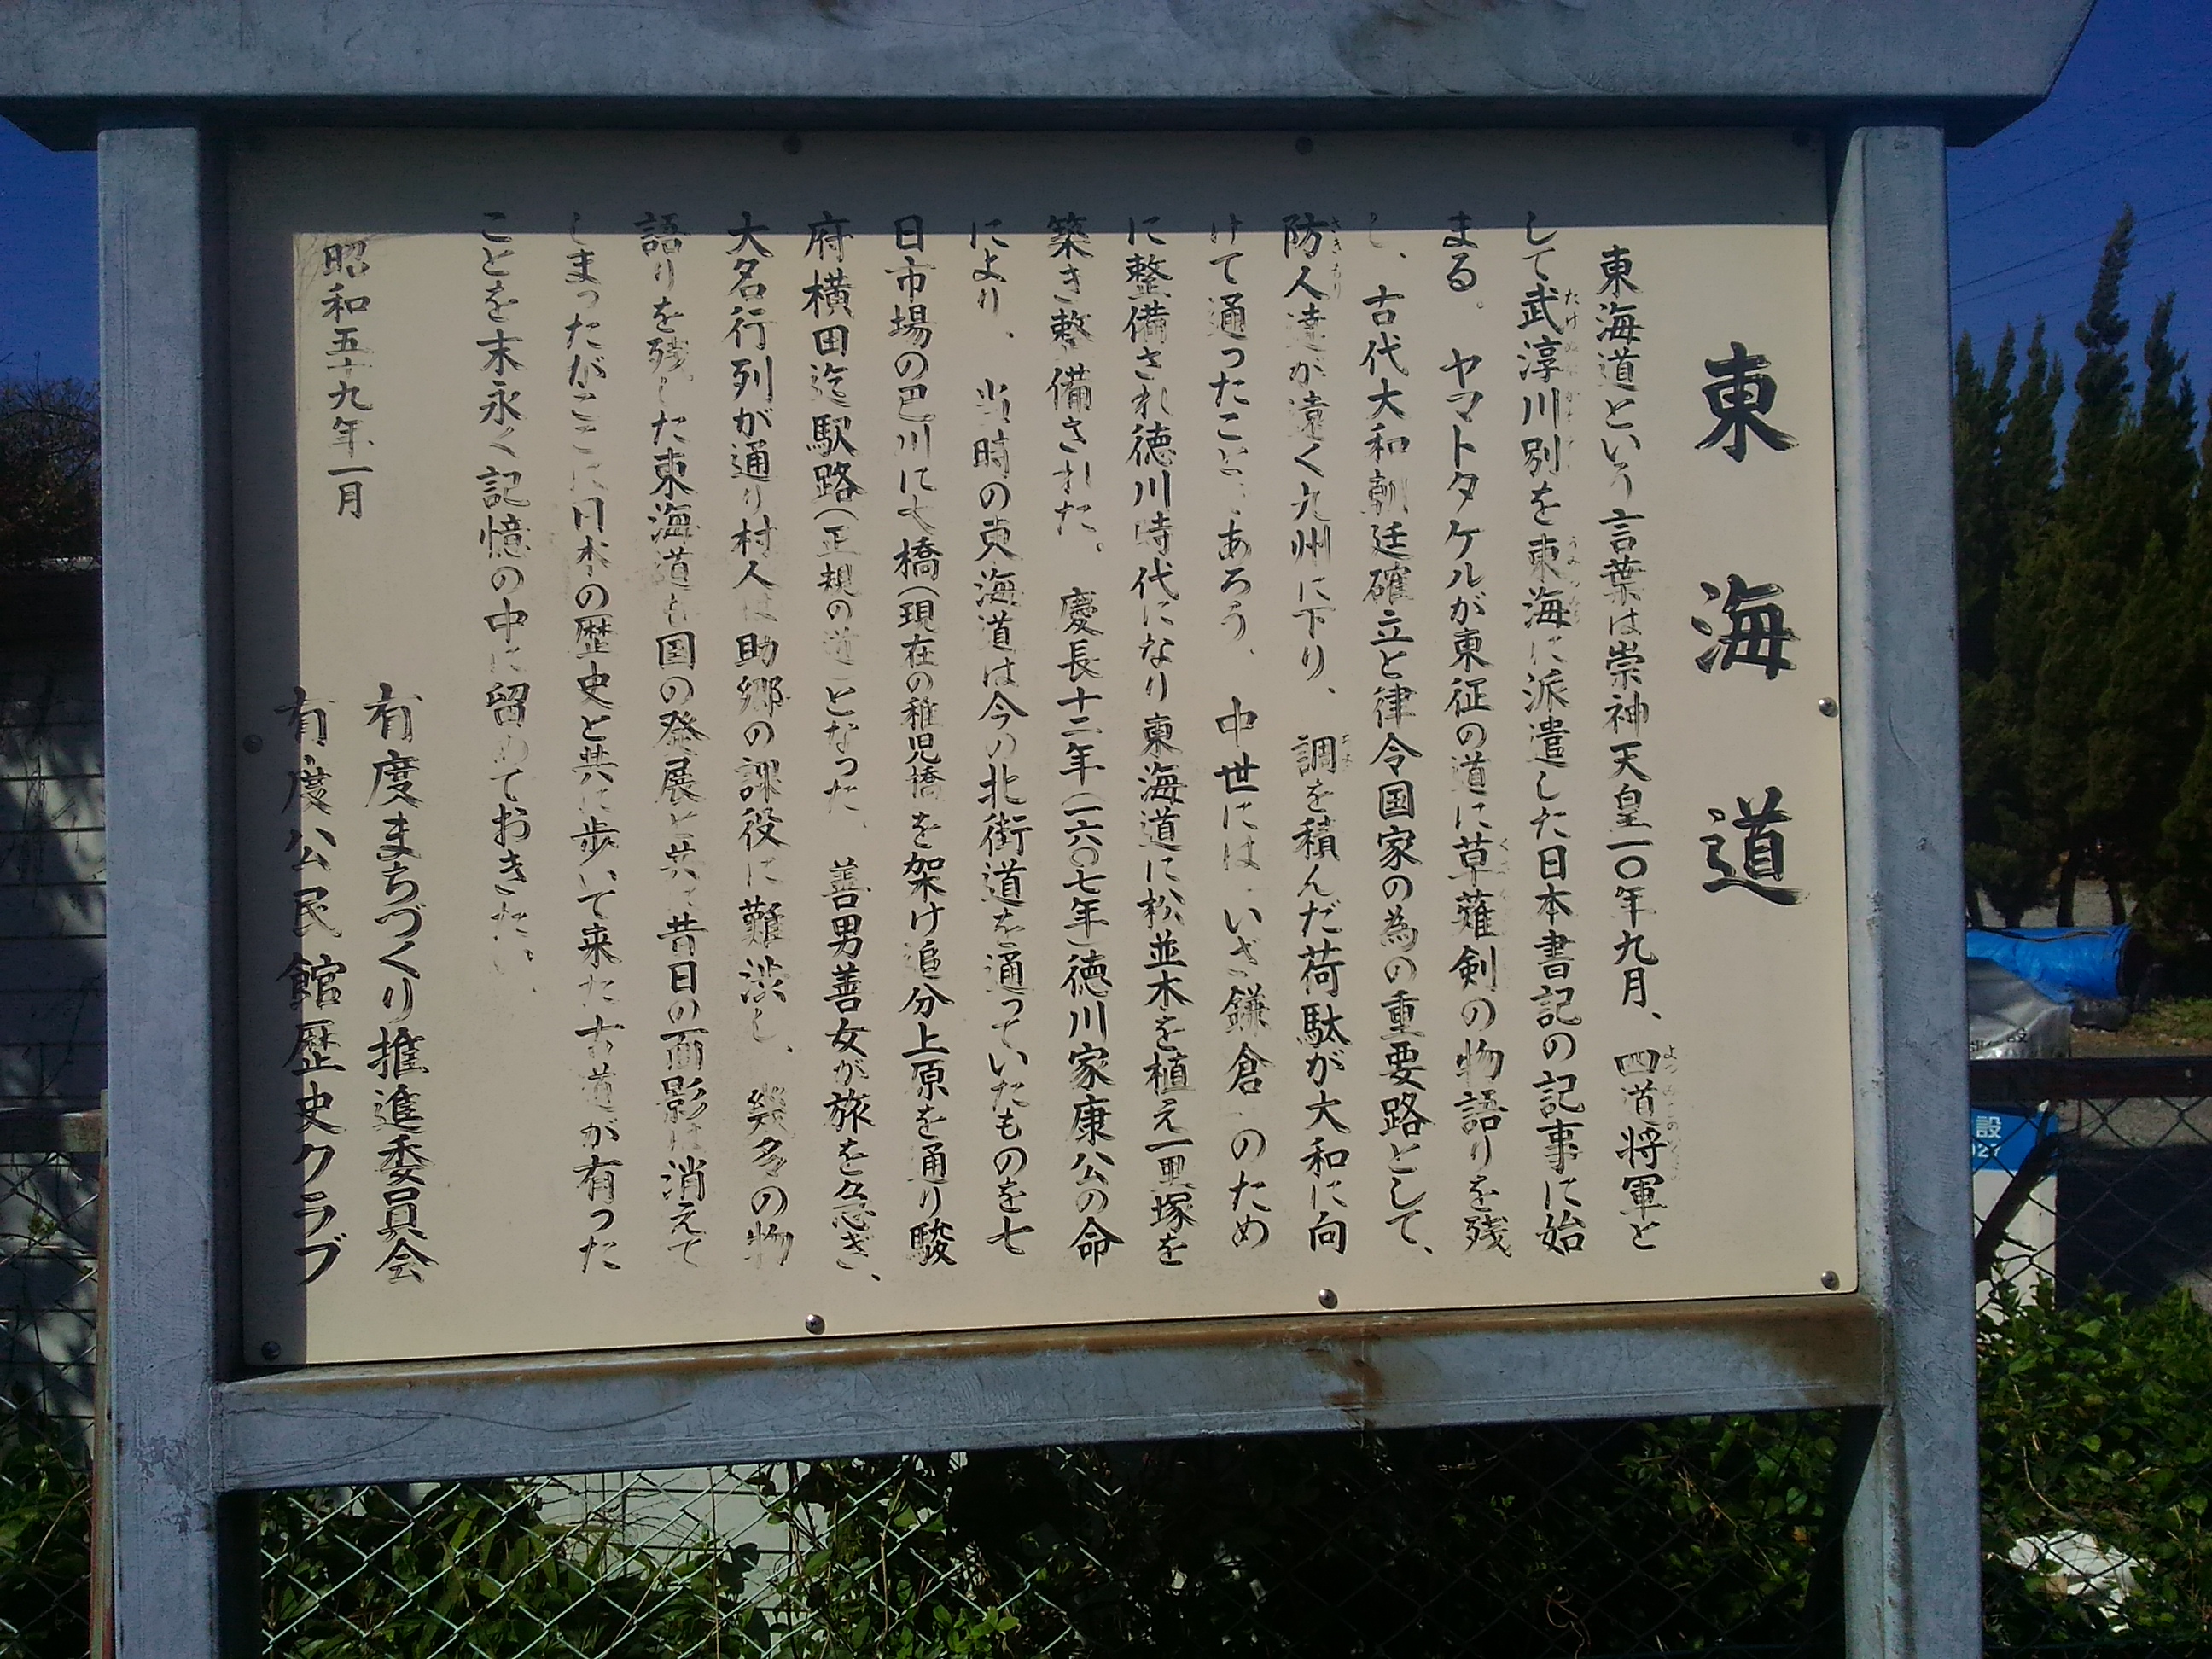 東海道
東海道という言葉は崇神天皇一〇年九月、四道将軍と
して武淳川別を東海に派遣した日本書記の記事に始
まる。ヤマトタケルが東征の道に草薙剣の物語りを残
し、古代大和朝廷確立と律令国家の為の重要路として、
防人達が遠く九州に下り、調を積んだ荷駄が大和に向
けて通ったことであろう。中世には、いざ鎌倉のため
に整備され徳川時代になり東海道に松並木を植え一里塚を
築き整備された。慶長十二年(一六〇七年)徳川家康公の命
により、当時の東海道は今の北街道を通っていたものを七
日市場の巴川に大橋(現在の稚児橋)を架け追分上原を通り駿
府横田迄駅路(正規の道)となった。善男善女が旅を急ぎ、
大名行列が通り村人は助郷の課役に難渋し、幾多の物
語りを残した東海道も国の発展と共に昔日の面影は消えて
しまったがここに日本の歴史と共に歩いて来た古道が有った
ことを末永く記憶の中に留めておきたい。
昭和五十九年一月
有度まちづくり推進委員会
有度公民館歴史クラブ